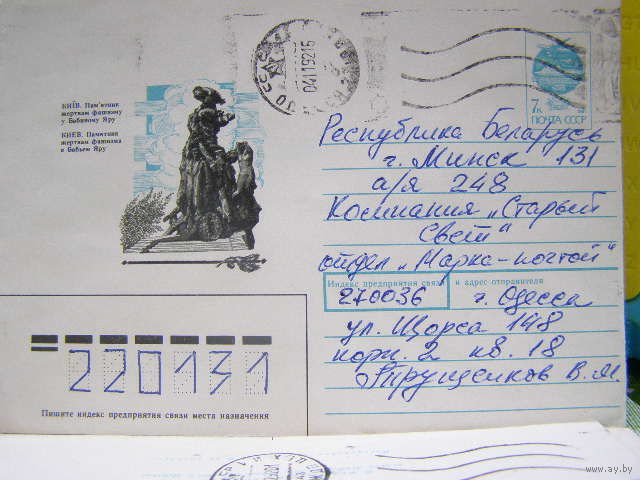 КИЇВ. Пам'ятник
жертвам фашизму
у Бабиному Яру
КИЕВ. Памятник
жертвам фашизма
в Бабьем Яру
ОДЕССА
04119216
7к
ПОЧТА СССР
Республика Беларусь
г. Минск 131
а/я 248
Компания „Старый
Свет“
отдел „Марка-почтой“
Индекс предприятия связи и адрес отправителя
270036 г. Одесса
ул. Щорса 148
корп. 2 кв. 18
Трущенков В.М.
220131
Пишите индекс предприятия связи места назначения
www.ay.by